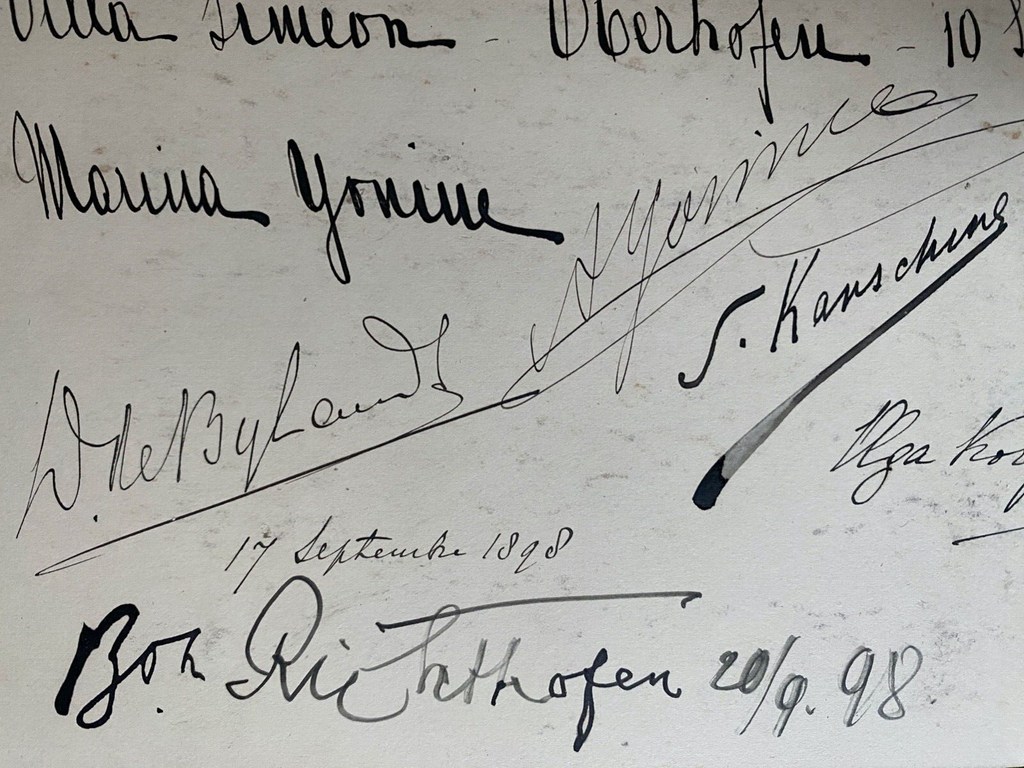 Villa Simeon - Oberhofen - 10 S
Marina Yonine
Yonine
S. Karschine
W. de Bylandt
Olga
17 Septembre 1898
Bon Richthofen 20/9. 98